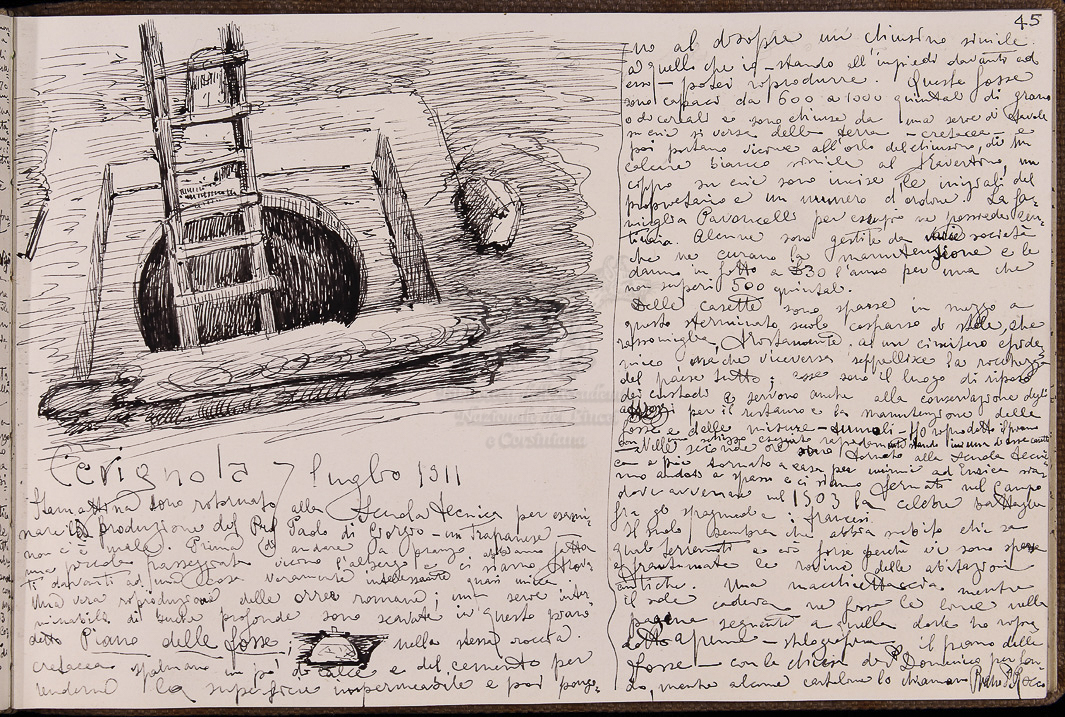 Cerignola 7 luglio 1911
Stamattina sono ritornato alla Scuola tecnica per esami-
nare la produzione del Prof Paolo di Giorgio - un Trapanese -
non c'è male. Prima di andare a pranzo abbiamo fatta
una piccola passeggiata vicino l'albergo e ci siamo trova-
ti davanti ad una cosa veramente interessante quasi unica.
Una vera riproduzione delle orrea romane; una serie inter-
minabile di buche profonde sono scavate in questo piano
detto Piano delle fosse, nella stessa roccia
cretacea spalmano un pò di calce e del cemento per
renderne la superficie impermeabile e poi pongo-
45
no al disopra un chiusino simile
a quello che io - stando all'impiedi davanti ad
essi - potei riprodurre. Queste fosse
sono capaci da 600 a 1000 quintali di grano
o di cereali e sono chiuse da una serie di tavole
su cui si versa della terra - cretacea - e
poi portano vicino all'orlo del chiusino, di un
calcare bianco simile al travertino, un
cippo su cui sono incise le iniziali del
proprietario e un numero d'ordine. La fa-
miglia Pavoncelli per esempio ne possiede cen-
tinaia. Alcune sono gestite da varie società
che ne curano la manutenzione e le
danno in fitto a £30 l'anno per una che
non superi 500 quintali.
Delle casette sono sparse in mezzo a
questo sterminato suolo cosparso di stele, che
rassomiglia, stranamente a un cimitero
ma che viceversa seppellisce la ricchezza
del paese tutto; esse sono il luogo di riposo
dei custodi e servono anche alla conservazione degli
attrezzi per il restauro e la manutenzione delle
fosse e delle misure - Ho riprodotto il primo
schizzo eseguito stando in una di esse casette
Nelle seconde ore sono tornato alla Scuola tecni-
ca e poi tornato a casa per unirmi ad Enrica sia-
mo andati a spasso e ci siamo fermati nel campo
dove avvenne nel 1503 la celebre battaglia
fra gli spagnuoli e i francesi.
Il suolo sembra che abbia subito
quei terremoti e ciò forse perchè vi sono sparse
e frantumate le rovine delle abitazioni
antiche. Una macchiettaccia mentre
il sole cadeva ne fosse la eco nella
pagina seguente a quella dove ho ripro-
dotto a penna - stilografica - il piano delle
fosse - con la chiesa di S. Domenico per fon-
do, mentre alcune cartoline lo chiamano Piano S. Rocco